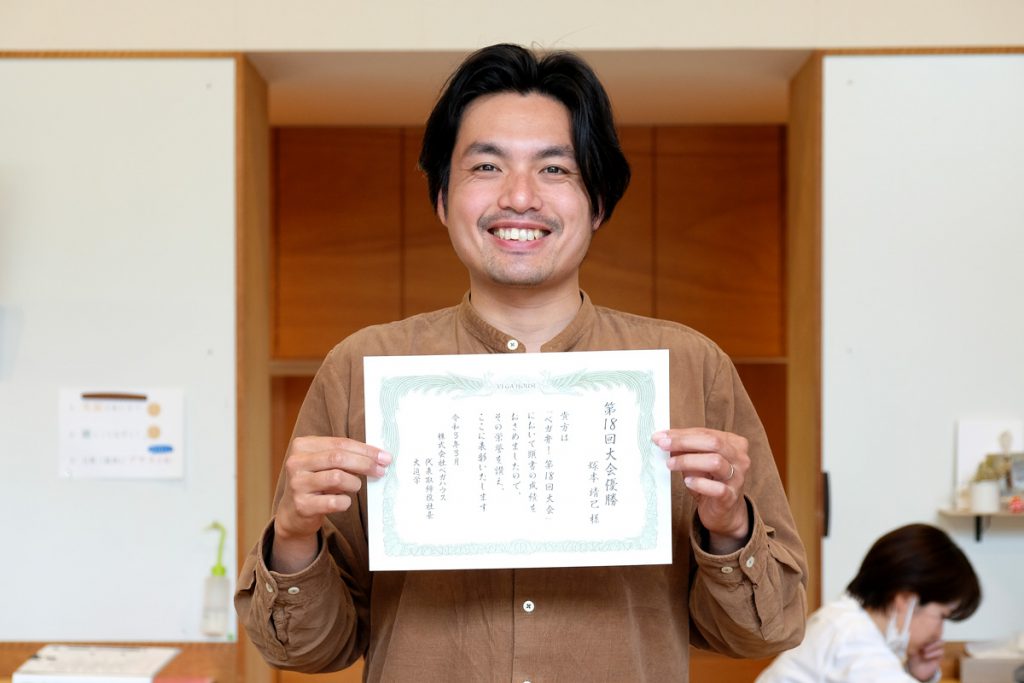 VEGA HOUSE
第18回大会優勝
塚本 靖己 様
貴方は
「ベガ弁！第18回大会」
において頭書の成績を
おさめましたので、
その栄誉を讃え、
ここに表彰いたします
令和5年5月
株式会社ベガハウス
代表取締役社長
大迫学